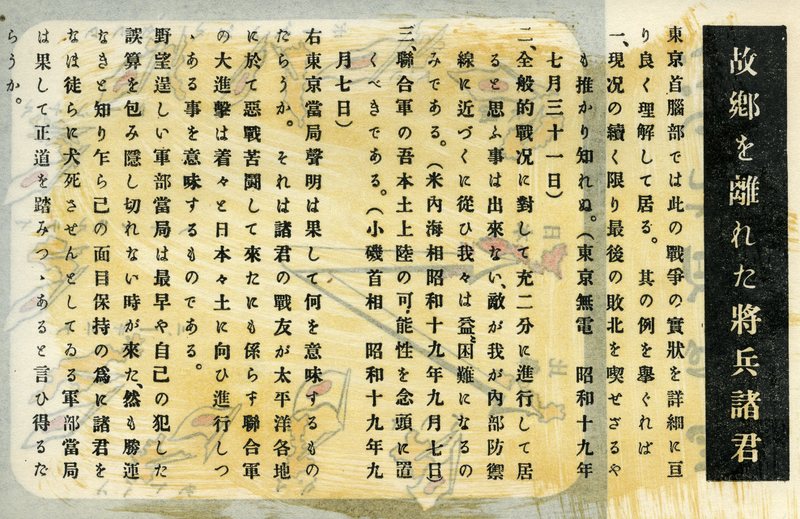 故鄕を離れた將兵諸君
東京首腦部では此の戰爭の實狀を詳細に亘
り良く理解して居る。其の例を擧ぐれば
一、現况の續く限り最後の敗北を喫せざるや
も推かり知れぬ。(東京無電 昭和十九年
七月三十一日)
二、全般的戰况に對して充二分に進行して居
ると思ふ事は出來ない、敵が我が內部防禦
線に近づくに從ひ我々は益〻困難になるの
みである。(米內海相昭和十九年九月七日)
三、聯合軍の吾本土上陸の可能性を念頭に置
くべきである。(小磯首相 昭和十九年九
月七日)
右東京當局聲明は果して何を意味するもの
たらうか。それは諸君の戰友が太平洋各地
に於て惡戰苦鬪して來たにも係らず聯合軍
の大進擊は着々と日本々土に向ひ進行しつ
ゝある事を意味するものである。
野望逞しい軍部當局は最早や自己の犯した
誤算を包み隱し切れない時が來た、然も勝運
なきと知り乍ら己の面目保持の爲に諸君を
なほ徒らに犬死させんとしてゐる軍部當局
は果して正道を踏みつゝあると言ひ得るだ
らうか。